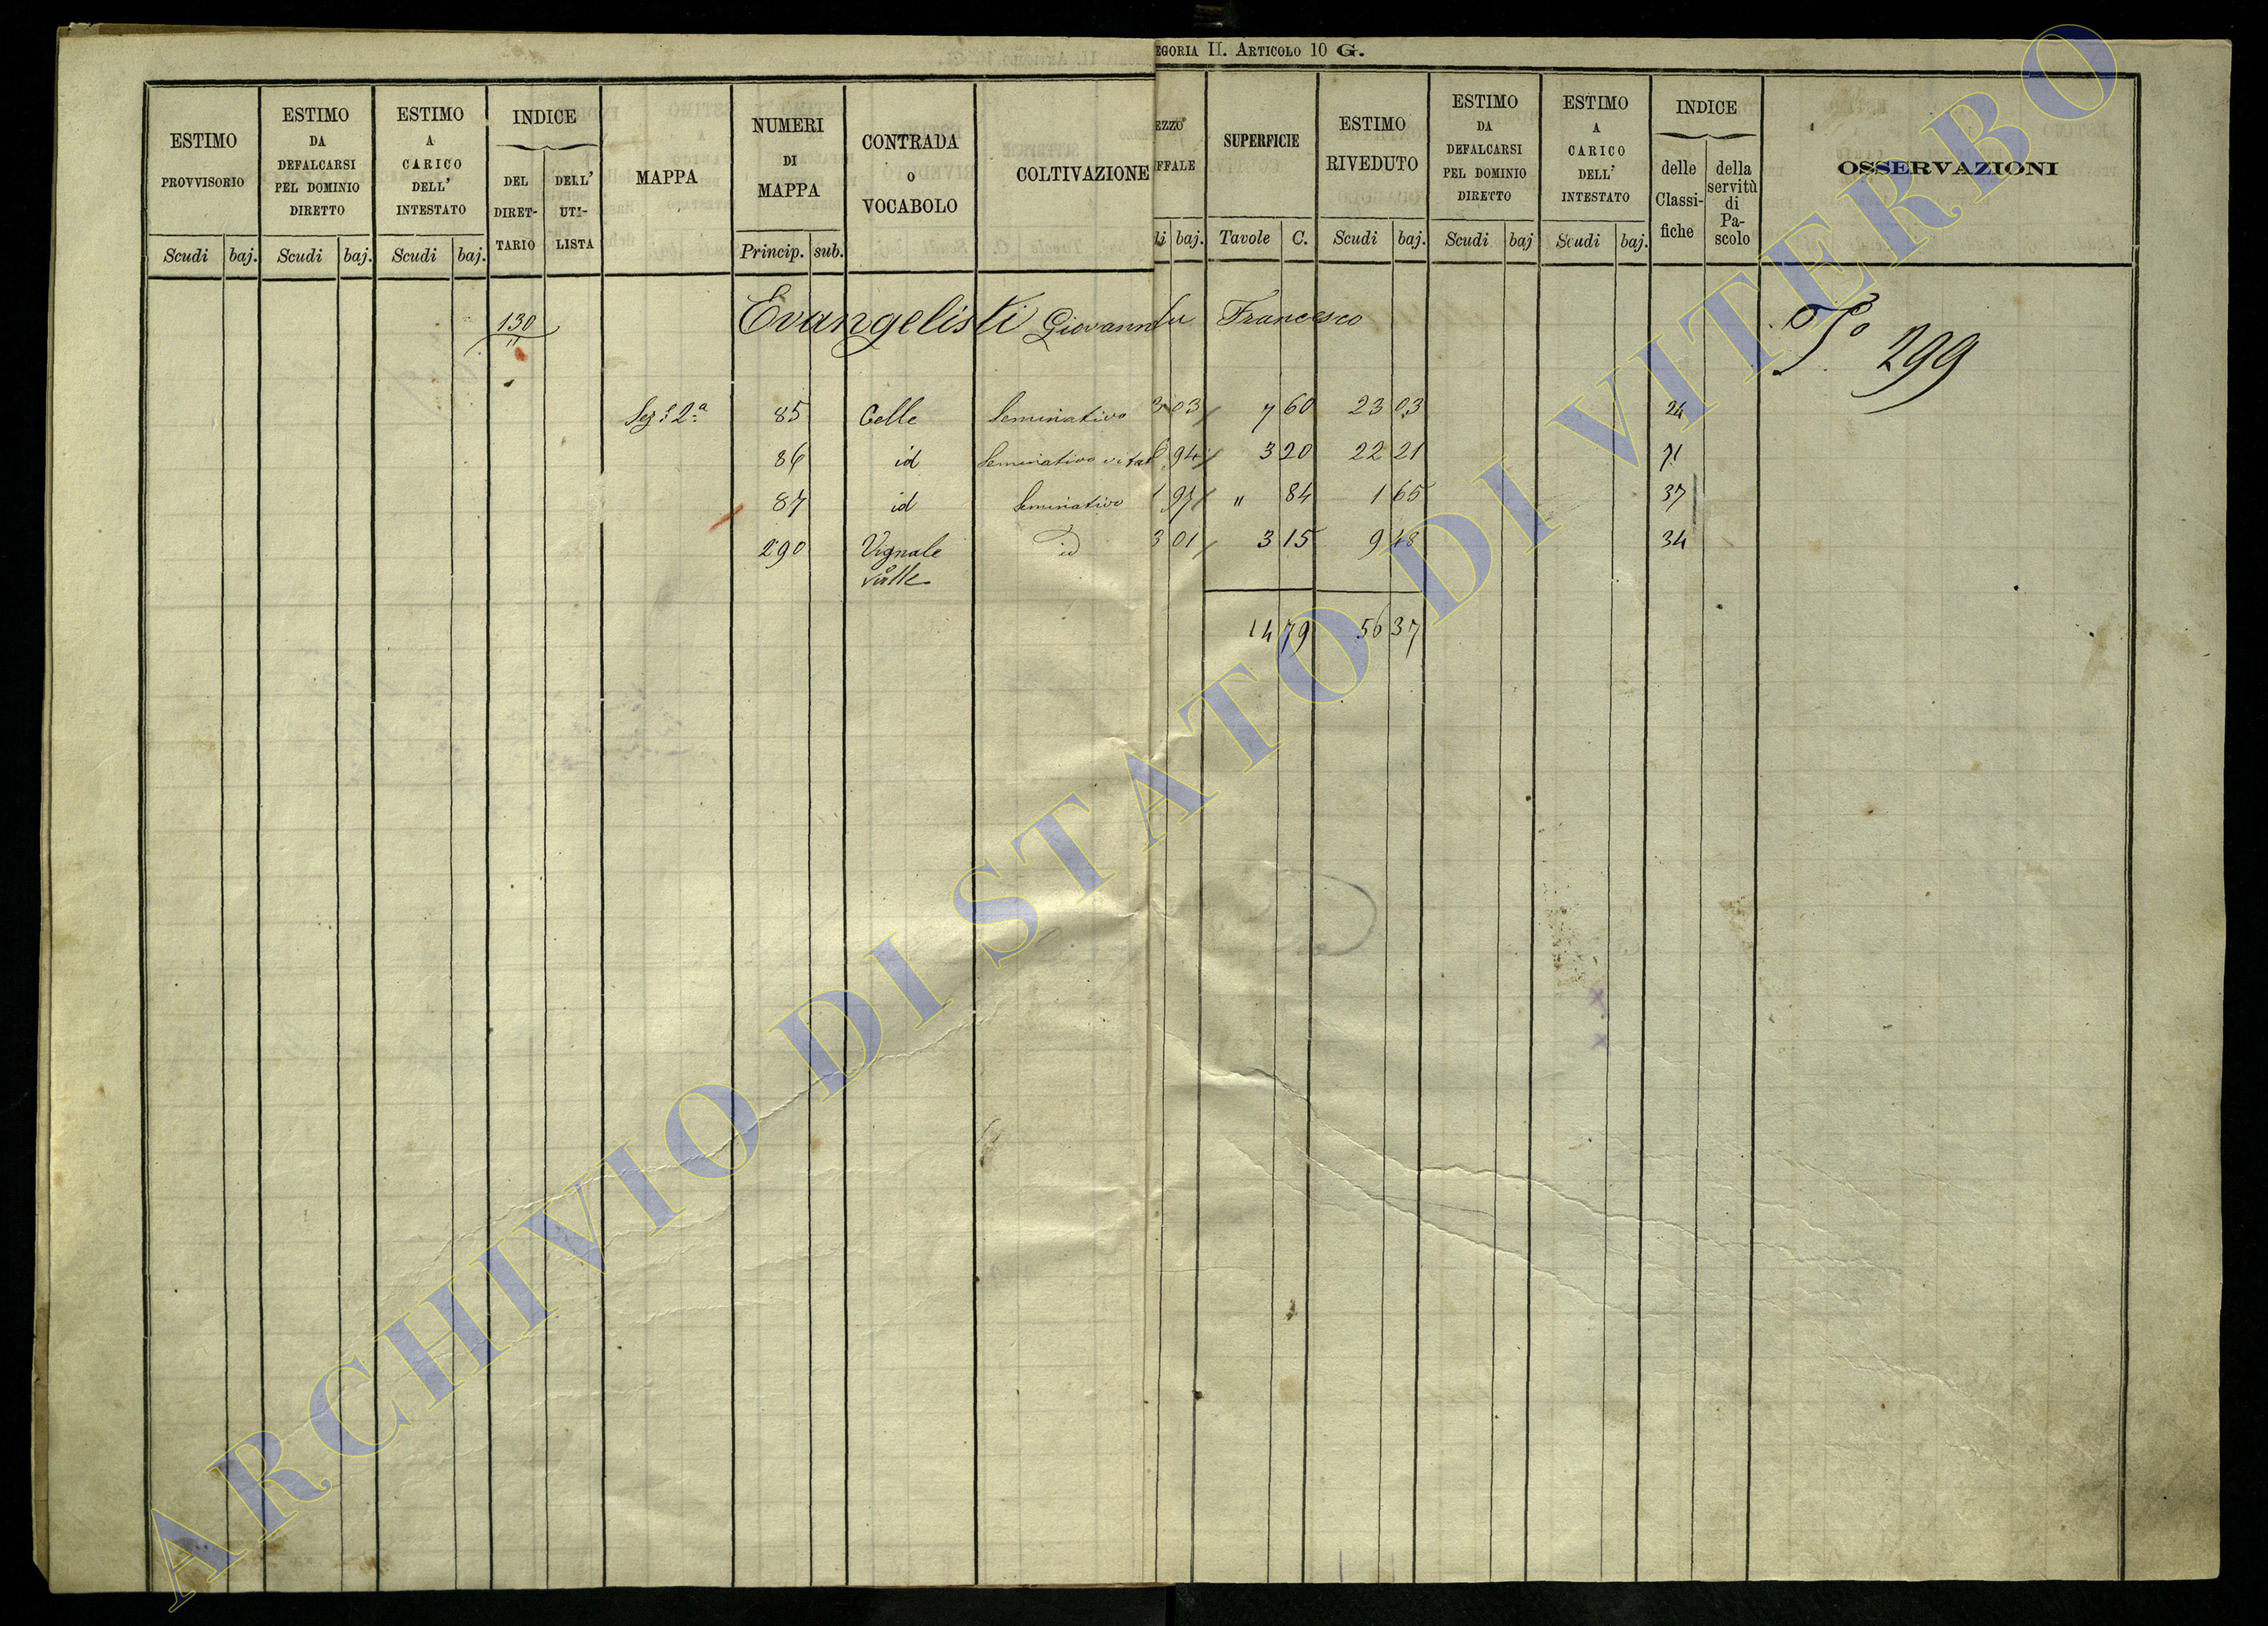 EGORIA II. ARTICOLO 10 G.
ESTIMO PROVVISORIO
Scudi baj.
ESTIMO DA DEFALCARSI PEL DOMINIO DIRETTO
Scudi baj.
ESTIMO A CARICO DELL' INTESTATO
Scudi baj.
INDICE
DEL DIRET-TARIO
DELL' UTI-LISTA
MAPPA
NUMERI DI MAPPA
Princip. sub.
CONTRADA O VOCABOLO
COLTIVAZIONE
EZZO FFALE
di baj.
SUPERFICIE
Tavole C.
ESTIMO RIVEDUTO
Scudi baj.
ESTIMO DA DEFALCARSI PEL DOMINIO DIRETTO
Scudi baj
ESTIMO A CARICO DELL' INTESTATO
Scudi baj.
INDICE
delle Classi-fiche
della servitù di Pa-scolo
OSSERVAZIONI
130 Evangelisti Giovanni fu Francesco
299
Sez: 2ª 85 Celle Seminativo 3 03 7 60 23 03 24
86 id Seminativo vitat 94 3 20 22 21 71
87 id Seminativo 1 97 " 84 1 65 37
290 Vignale id 3 01 3 15 9 48 34
valle
14 79 56 37
ARCHIVIO DI STATO DI VITERBO